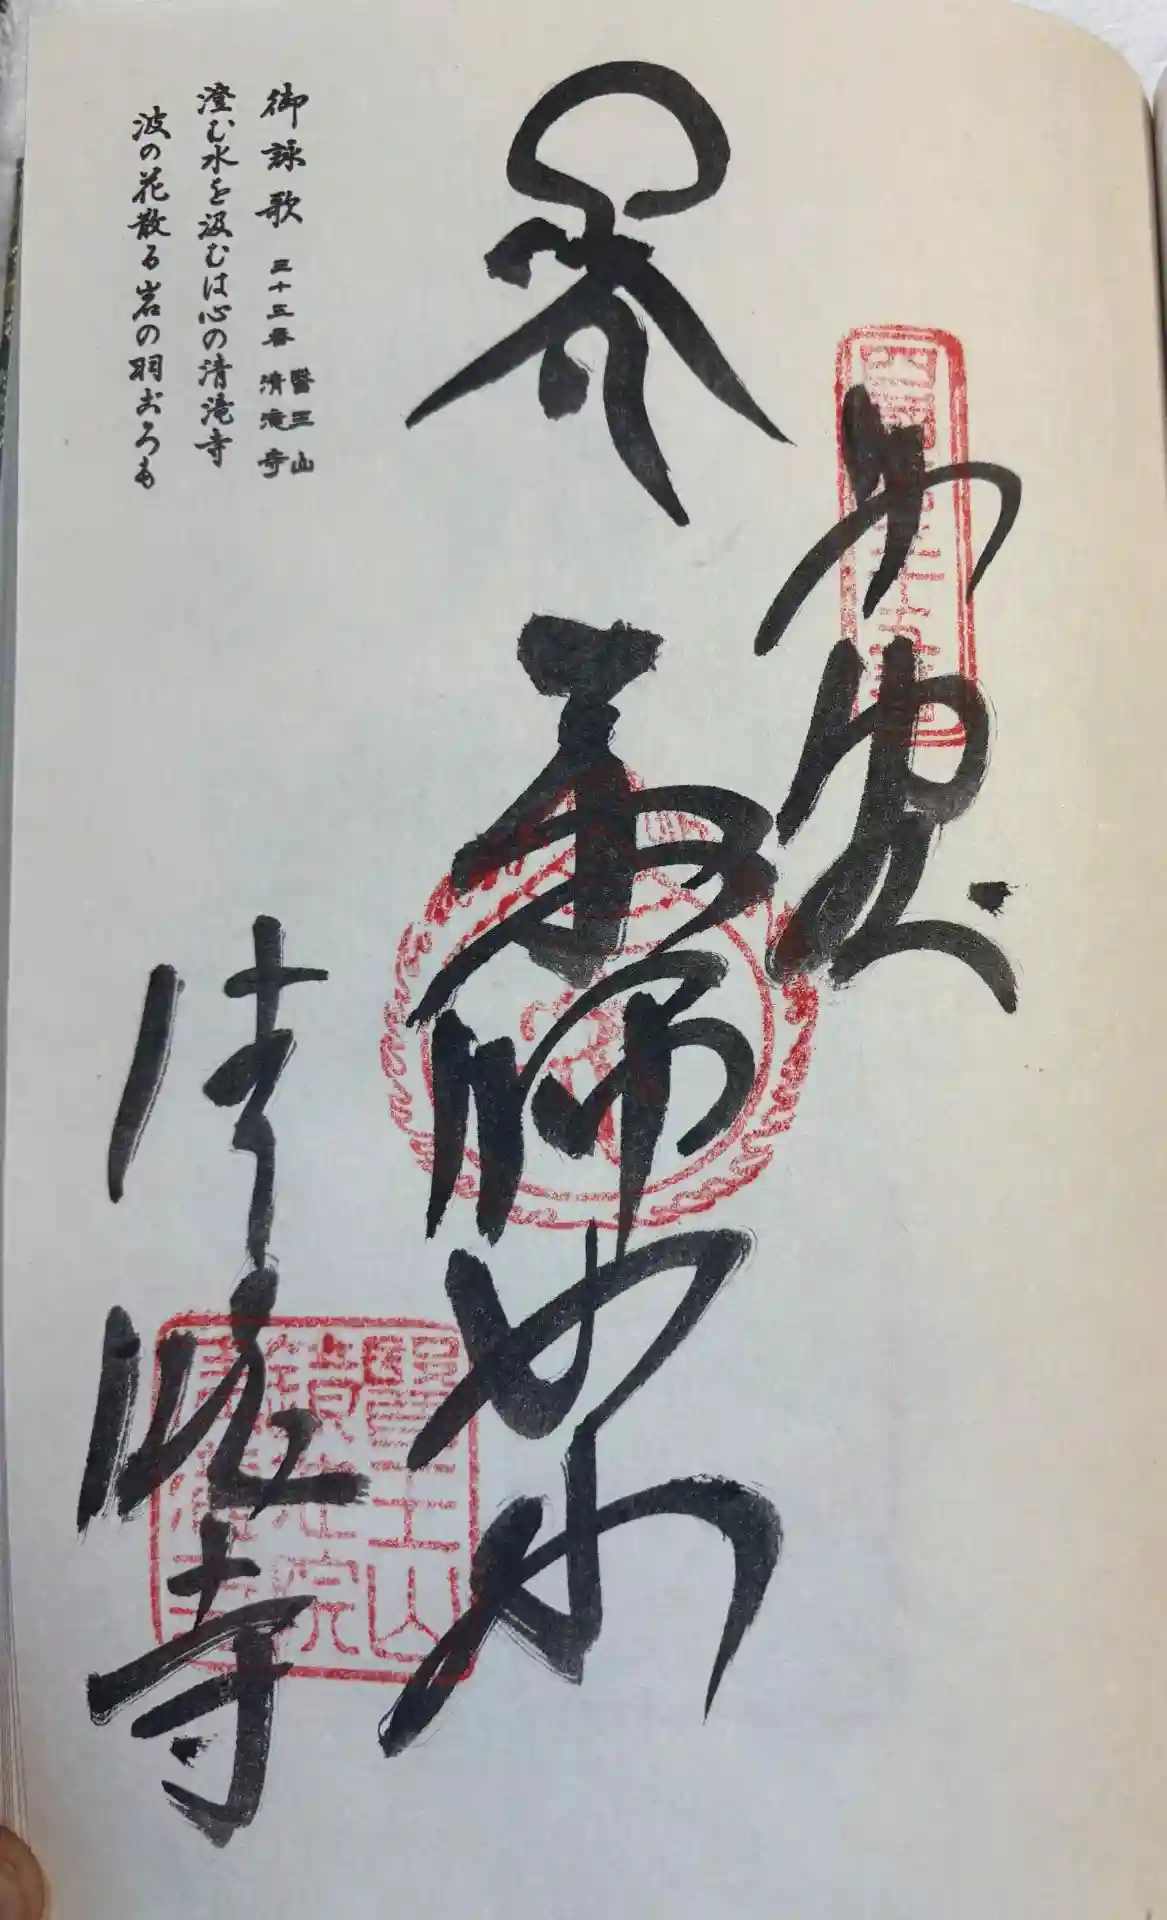 御詠歌 三十五番 醫王山 清滝寺
澄む水を汲むは心の清滝寺
波の花散る岩の羽ごろも
薬師如来
清滝寺
醫王山
鏡池院